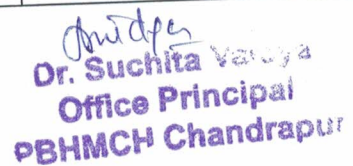 Dr. Suchita
Office Principal
PBHMCH Chandrapur